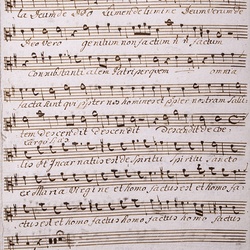 la Deum de Deo Lumen de lumine Deum verum de
Deo Vero genitum non factum factum
Consubstantialem Patri per quem omnia
facta sunt qui propter nos homines et propter nostram salu
tem descendit descendit descendit de coe
lis Et Incarnatus est de Spiritu Spiritu Sancto
ex Maria Virgine et homo factus est et homo fa
ctus est et homo factus homo factus homo factus